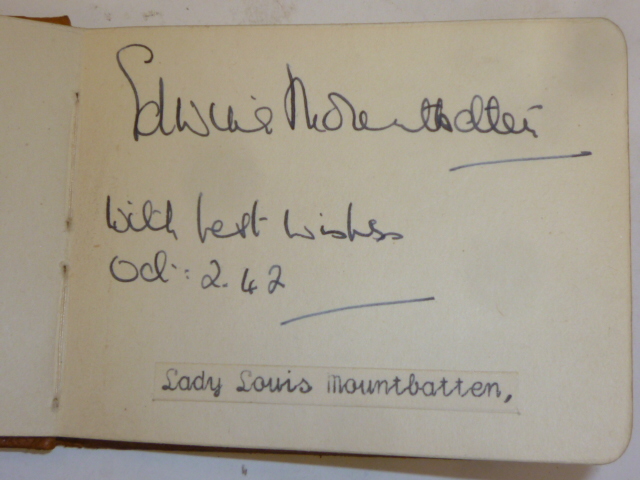 Edwina Mountbatten
With best wishes
Oct: 2. 42
Lady Louis Mountbatten,